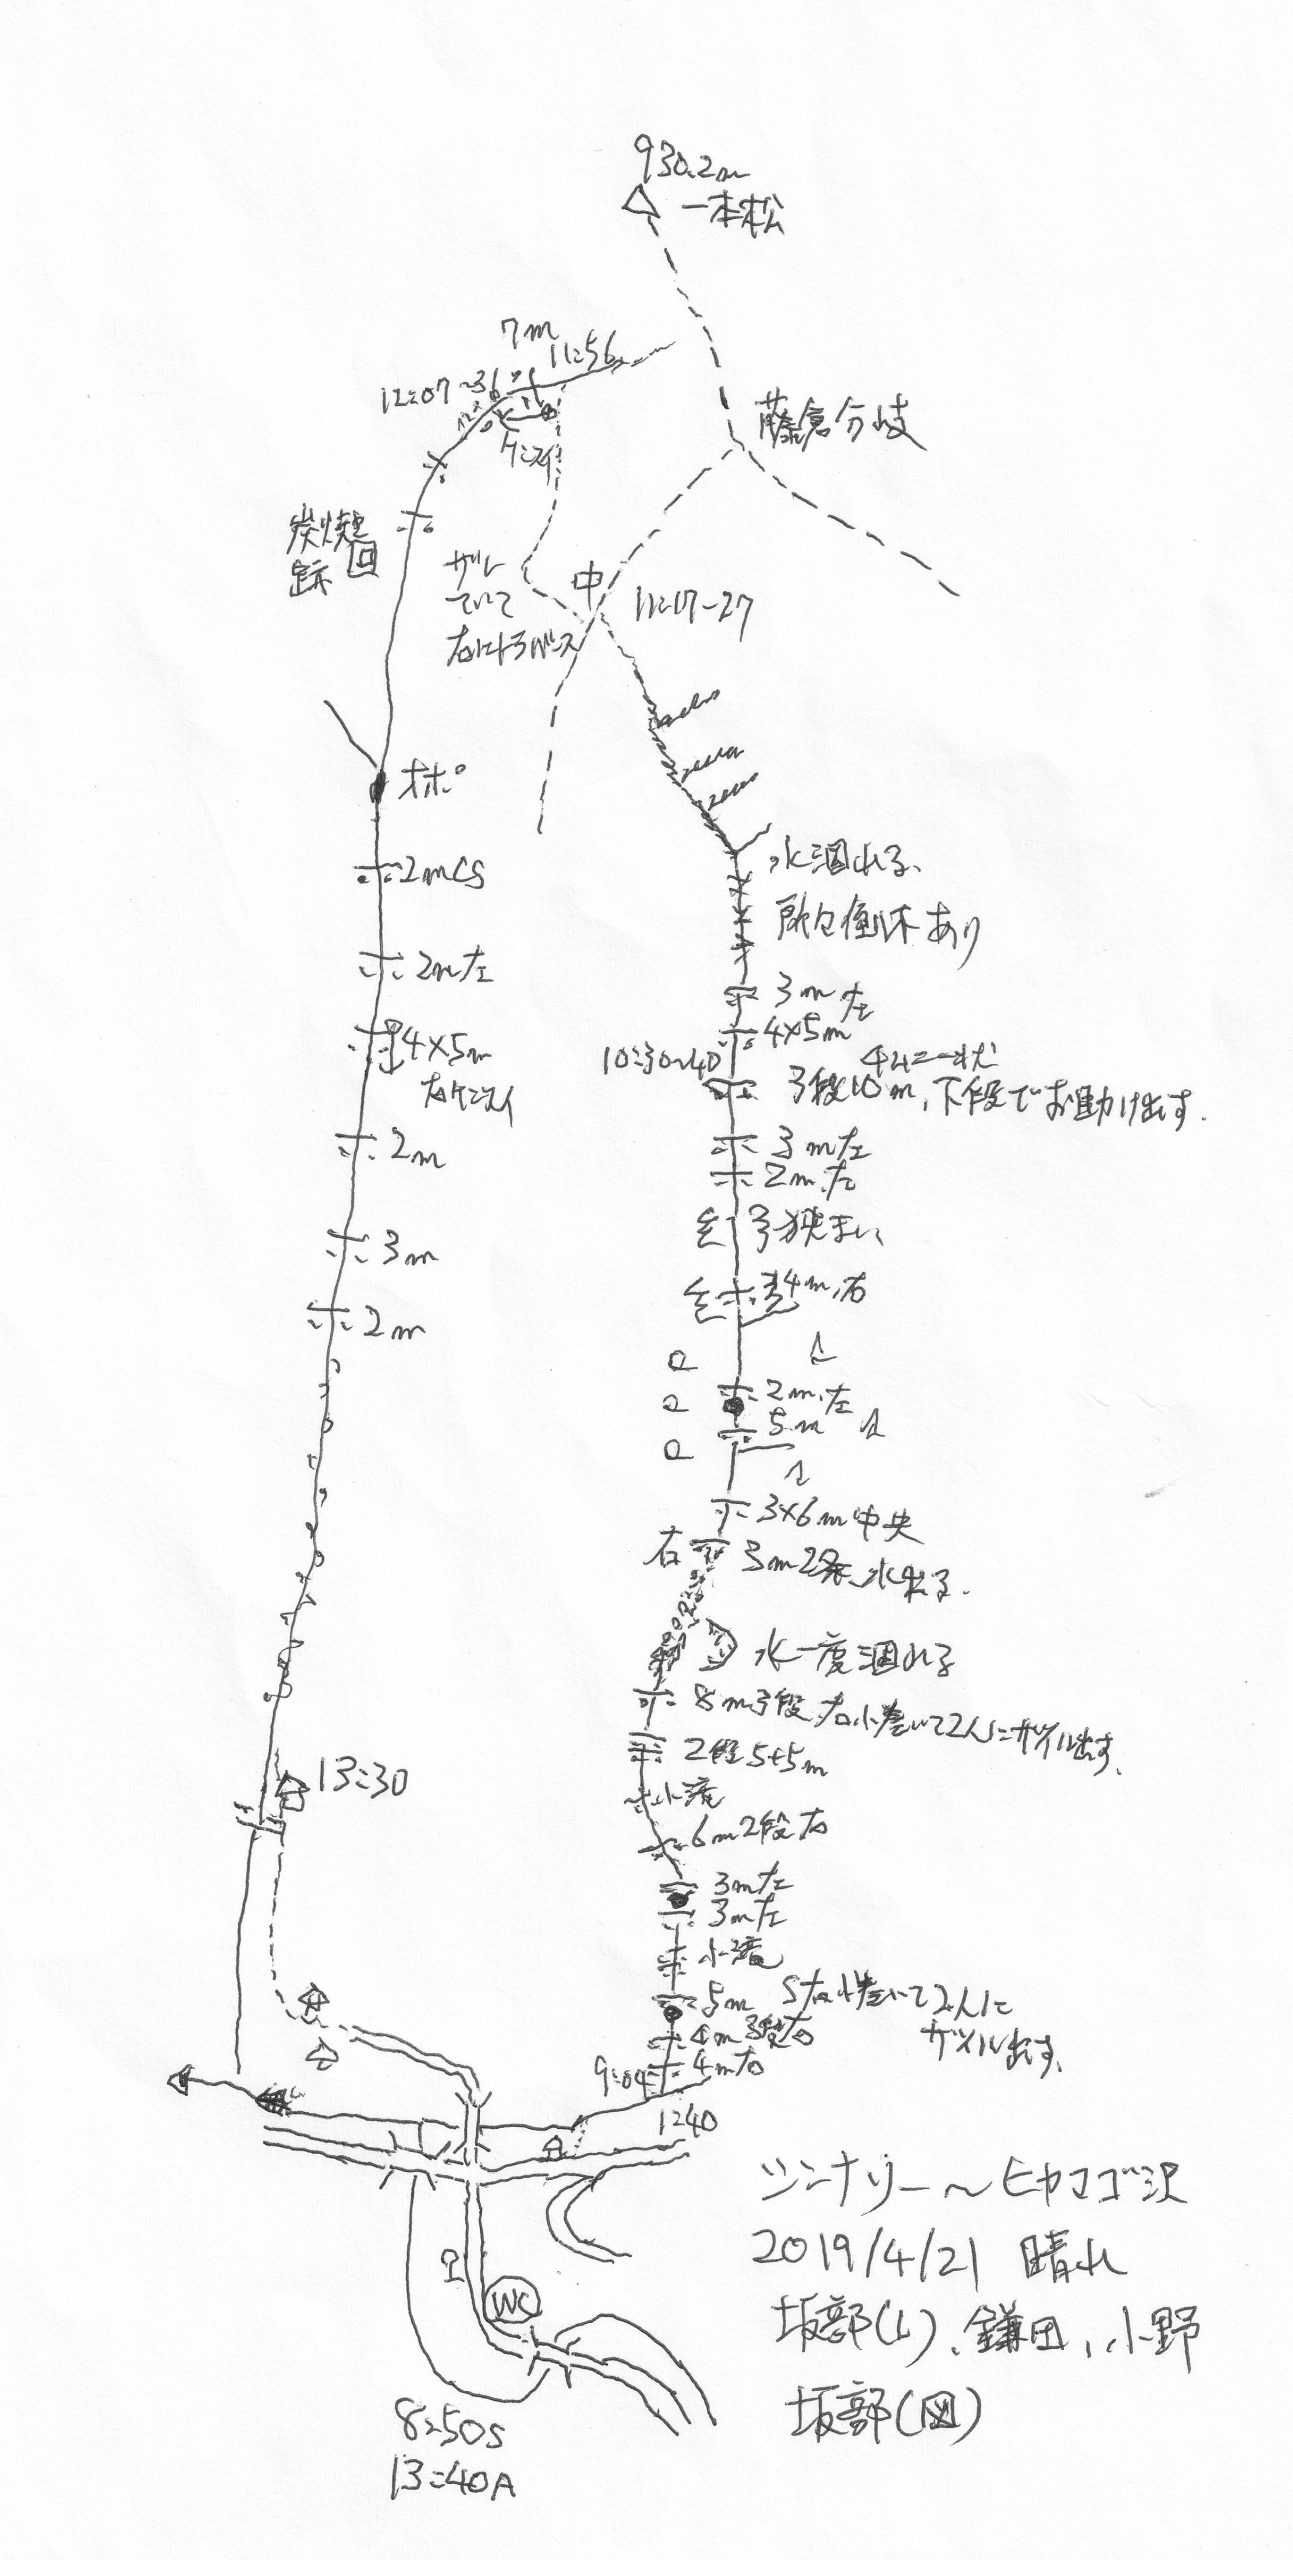 930.2m
一本松
7m
11:56
12:07~36
藤倉分岐
ケンスイ
炭焼
跡
ザレ
ていて
右にトラバース
中
11:17-27
オポ
2mCS
2m左
4×5m
右ケンスイ
2m
3m
2m
水涸れる、
所々倒木あり
3m左
4×5m
10:30~40
チムニー状
3段10m、下段でお助け出す.
3m左
2m、左
狭まい
4m、右
2m、左
5m
3×6m中央
右
3m2条、水出る.
水一度涸れる
8m3段、右小巻いて2人にザイル出す.
2段5+5m
小滝
6m2段右
3m左
3m左
小滝
5m
S右小巻いて2人に
ザイル出す.
4m3段右
9:04
4m右
1:40
13:30
WC
8:50S
13:40A
ツンナリー~ヒヤマゴ沢
2019/4/21 晴れ
坂部(L)、鎌田、小野
坂部(図)